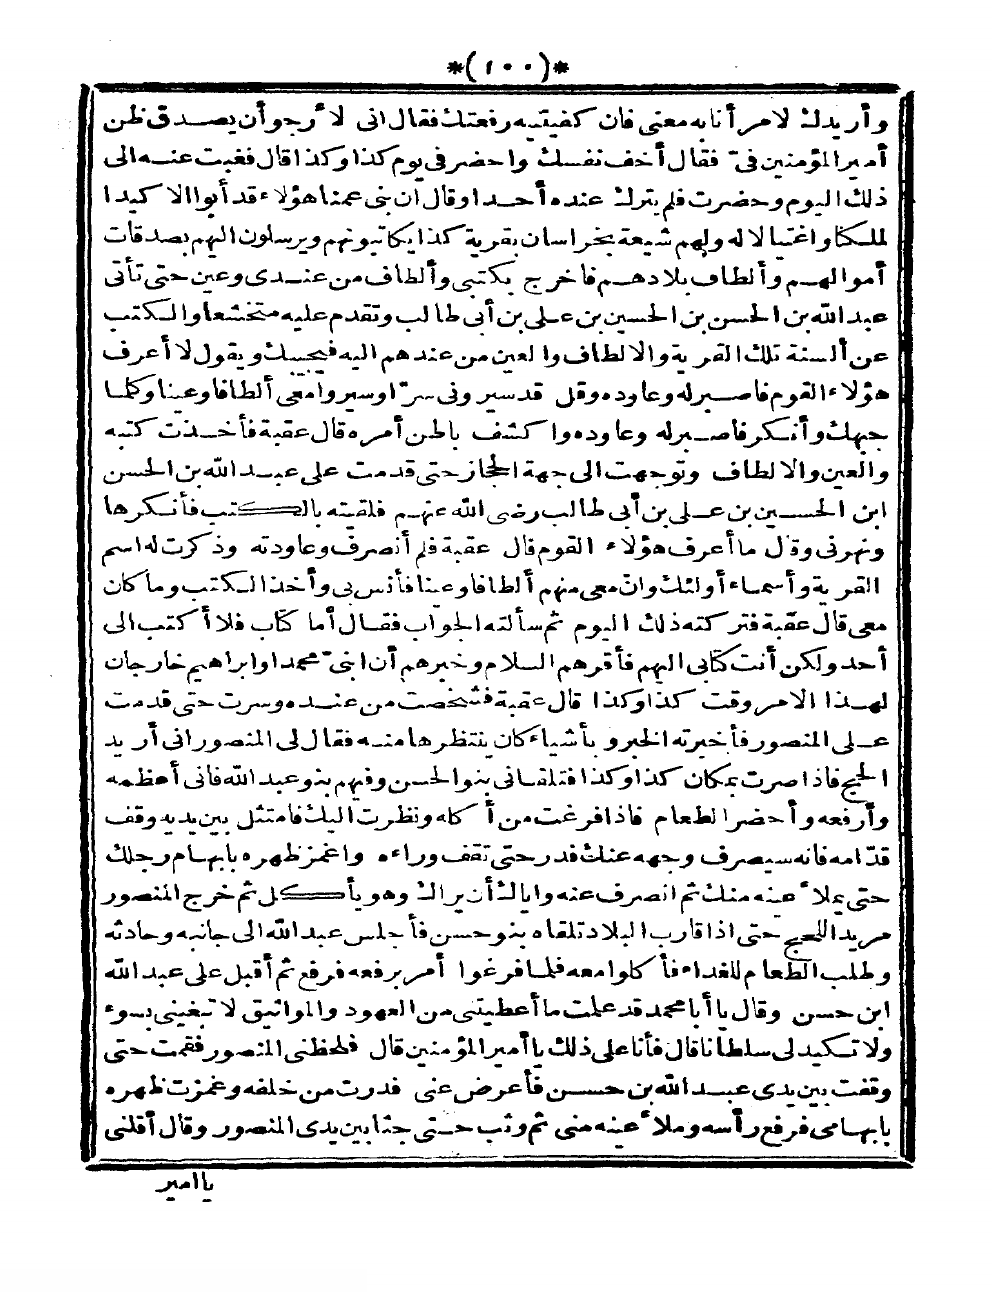 *(١٠٠)*
وأريدك لامر أنا به معنى فان كفيتنيه رفعتك فقال انى لا ٔرجو أن يصدق ظن
أمير المؤمنين فىّ فقال أخف نفسك واحضر فى يوم كذا وكذا قال فغبت عنه الى
ذلك اليوم وحضرت فلم يترك عنده أحدا وقال ان بنى عمنا هؤلاء قد أبوا الا كيدا
لملكنا واغتيالا له ولهم شيعة بخراسان بقرية كذا يكاتبونهم ويرسلون اليهم بصدقات
أموالهم وألطاف بلادهم فاخرج بكتبى وألطاف من عندى وعين حتى تأتى
عبد الله بن الحسن بن الحسين بن على بن أبى طالب وتقدم عليه متخشعا والكتب
عن ألسنة تلك القرية والالطاف والعين من عندهم اليه فيجيبك ويقول لا أعرف
هؤلاء القوم فاصبر له وعاوده وقل قد سيرونى سرّا وسيروا معى ألطافا وعينا وكلما
جبهك وأنكر فاصبر له وعاوده واكشف باطن أمره قال عقبة فأخذت كتبه
والعين والالطاف وتوجهت الى جهة الحجاز حتى قدمت على عبد الله بن الحسن
ابن الحسين بن على بن أبى طالب رضى الله عنهم فلقيته بالكتب فأنكرها
ونهرنى وقال ما أعرف هؤلاء القوم قال عقبة فلم أنصرف وعاودته وذكرت له اسم
القرية وأسماء أولئك وانّ معى منهم ألطافا وعينا فأنس بى وأخذ الكتب وما كان
معى قال عقبة فتركته ذلك اليوم ثم سألته الجواب فقال أما كتاب فلا أكتب الى
أحد ولكن أنت كتابى اليهم فأقرهم السلام وخبرهم أن ابنىّ محمدا وابراهيم خارجان
لهذا الامر وقت كذا وكذا قال عقبة فشخصت من عنده وسرت حتى قدمت
على المنصور فأخبرته الخبر وبأشياء كان ينتظرها منه فقال لى المنصور انى أريد
الحج فاذا صرت بمكان كذا وكذا فتلقانى بنو الحسن وفيهم بنو عبد الله فانى أعظمه
وأرفعه وأحضر الطعام فاذا فرغت من أكله ونظرت اليك فامتثل بين يديه وقف
قدّامه فانه سيصرف وجهه عنك فدر حتى تقف وراءه واغمز ظهره بابهام رجلك
حتى يملا ٔعينه منك ثم انصرف عنه واياك أن يراك وهو يأكل ثم خرج المنصور
مريدا للحج حتى اذا قارب البلاد تلقاه بنو حسن فأجلس عبد الله الى جانبه وحادثه
وطلب الطعام للغداء فأكلوا معه فلما فرغوا أمر برفعه فرفع ثم أقبل على عبد الله
ابن حسن وقال يا أبا محمد قد علمت ما أعطيتنى من العهود والمواثيق لا تبغينى بسوء
ولا تكيد لى سلطانا قال فأنا على ذلك يا أمير المؤمنين قال فلحظنى المنصور فقمت حتى
وقفت بين يدى عبد الله بن حسن فأعرض عنى فدرت من خلفه وغمزت ظهره
بابهامى فرفع رأسه وملا ٔعينه منى ثم وثب حتى جثا بين يدى المنصور وقال أقلنى
يا امير